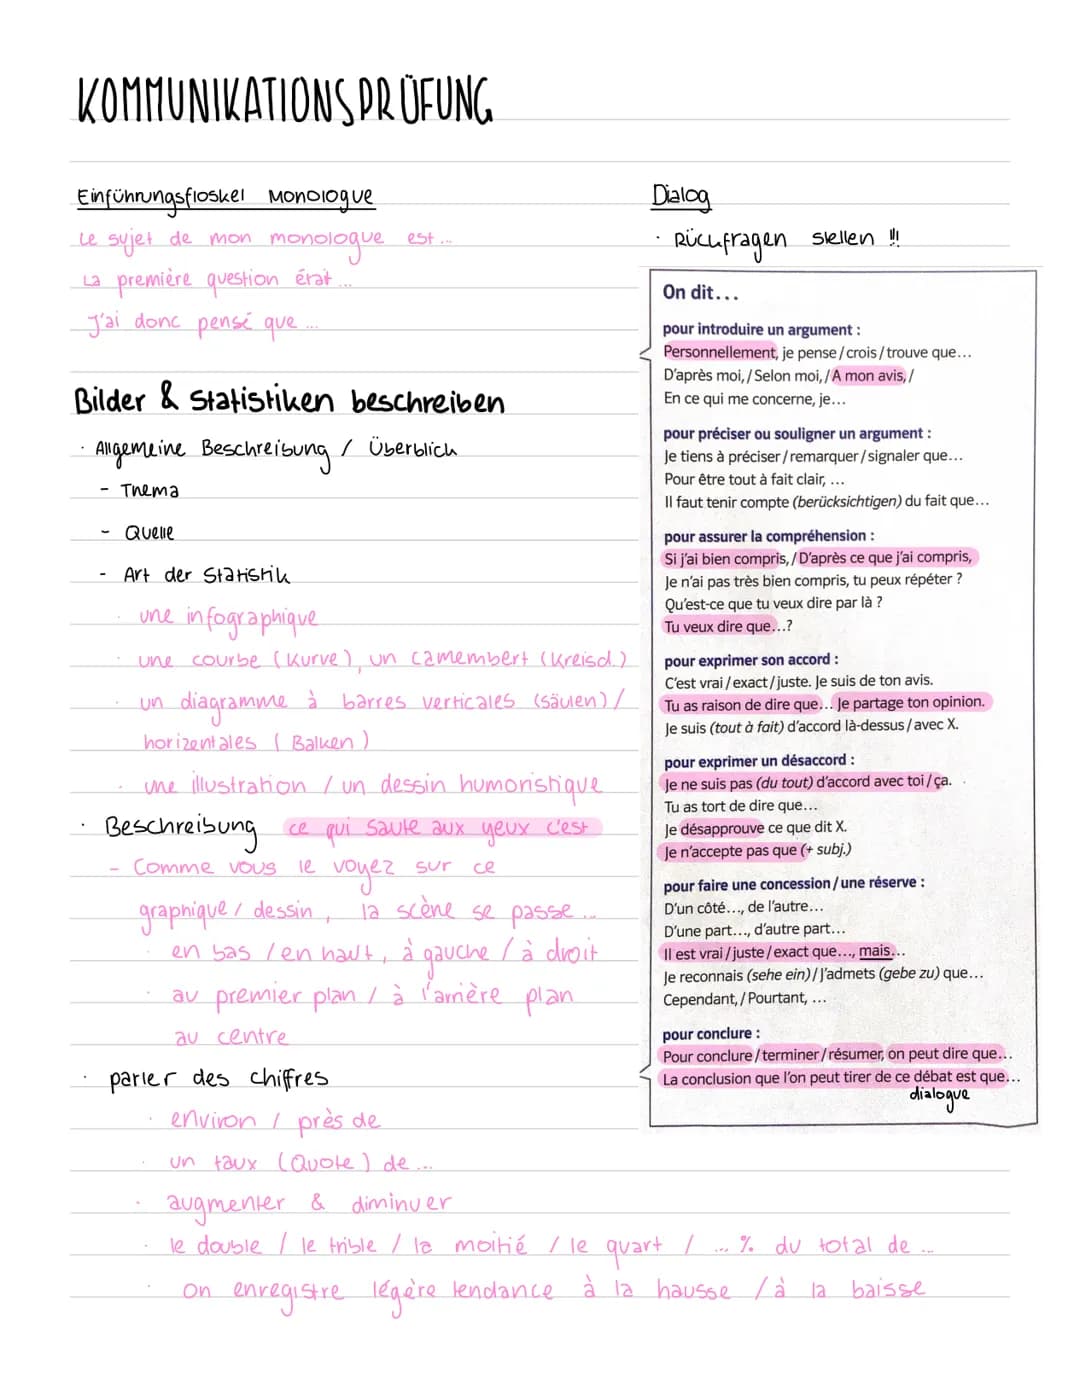 KOMMUNIKATIONSPRÜFUNG
Einführungsfloskel Monologue
Le sujet de mon monologue est ...
La première question érait ...
J'ai donc pensé que ...
Bilder & Statistiken beschreiben
· Allgemeine Beschreibung / Überblich
- Thema
- Quelle
- Art der Statistik
· une infographique
· une courbe (Kurve), un camembert (Kreisd.)
· un diagramme à barres verticales (Säulen) /
horizentales (Balken)
· une illustration / un dessin humoristique
· Beschreibung ce qui saute aux yeux c'est
- Comme vous le voyez sur ce
graphique / dessin, la scène se passe ...
· en bas / en haut, à gauche / à droit
· au premier plan / à l'arrière plan
au centre
· parler des chiffres
· environ / près de
· un taux (Quote) de ...
· augmenter & diminuer
· le double / le trible / la moitié / le quart / ... % du total de ...
· On enregistre légère tendance à la hausse / à la baisse
Dialog
· Rückfragen stellen !!!
On dit...
pour introduire un argument :
Personnellement, je pense / crois / trouve que...
D'après moi, / Selon moi, / A mon avis, /
En ce qui me concerne, je...
pour préciser ou souligner un argument :
Je tiens à préciser / remarquer / signaler que...
Pour être tout à fait clair, ...
Il faut tenir compte (berücksichtigen) du fait que...
pour assurer la compréhension :
Si j'ai bien compris, / D'après ce que j'ai compris,
Je n'ai pas très bien compris, tu peux répéter ?
Qu'est-ce que tu veux dire par là ?
Tu veux dire que...?
pour exprimer son accord :
C'est vrai / exact / juste. Je suis de ton avis.
Tu as raison de dire que... Je partage ton opinion.
Je suis (tout à fait) d'accord là-dessus / avec X.
pour exprimer un désaccord :
Je ne suis pas (du tout) d'accord avec toi / ça.
Tu as tort de dire que...
Je désapprouve ce que dit X.
Je n'accepte pas que (+ subj.)
pour faire une concession / une réserve :
D'un côté..., de l'autre...
D'une part..., d'autre part...
Il est vrai / juste / exact que..., mais...
Je reconnais (sehe ein) / J'admets (gebe zu) que...
Cependant, / Pourtant, ...
pour conclure :
Pour conclure / terminer / résumer, on peut dire que...
La conclusion que l'on peut tirer de ce débat est que...
dialogue